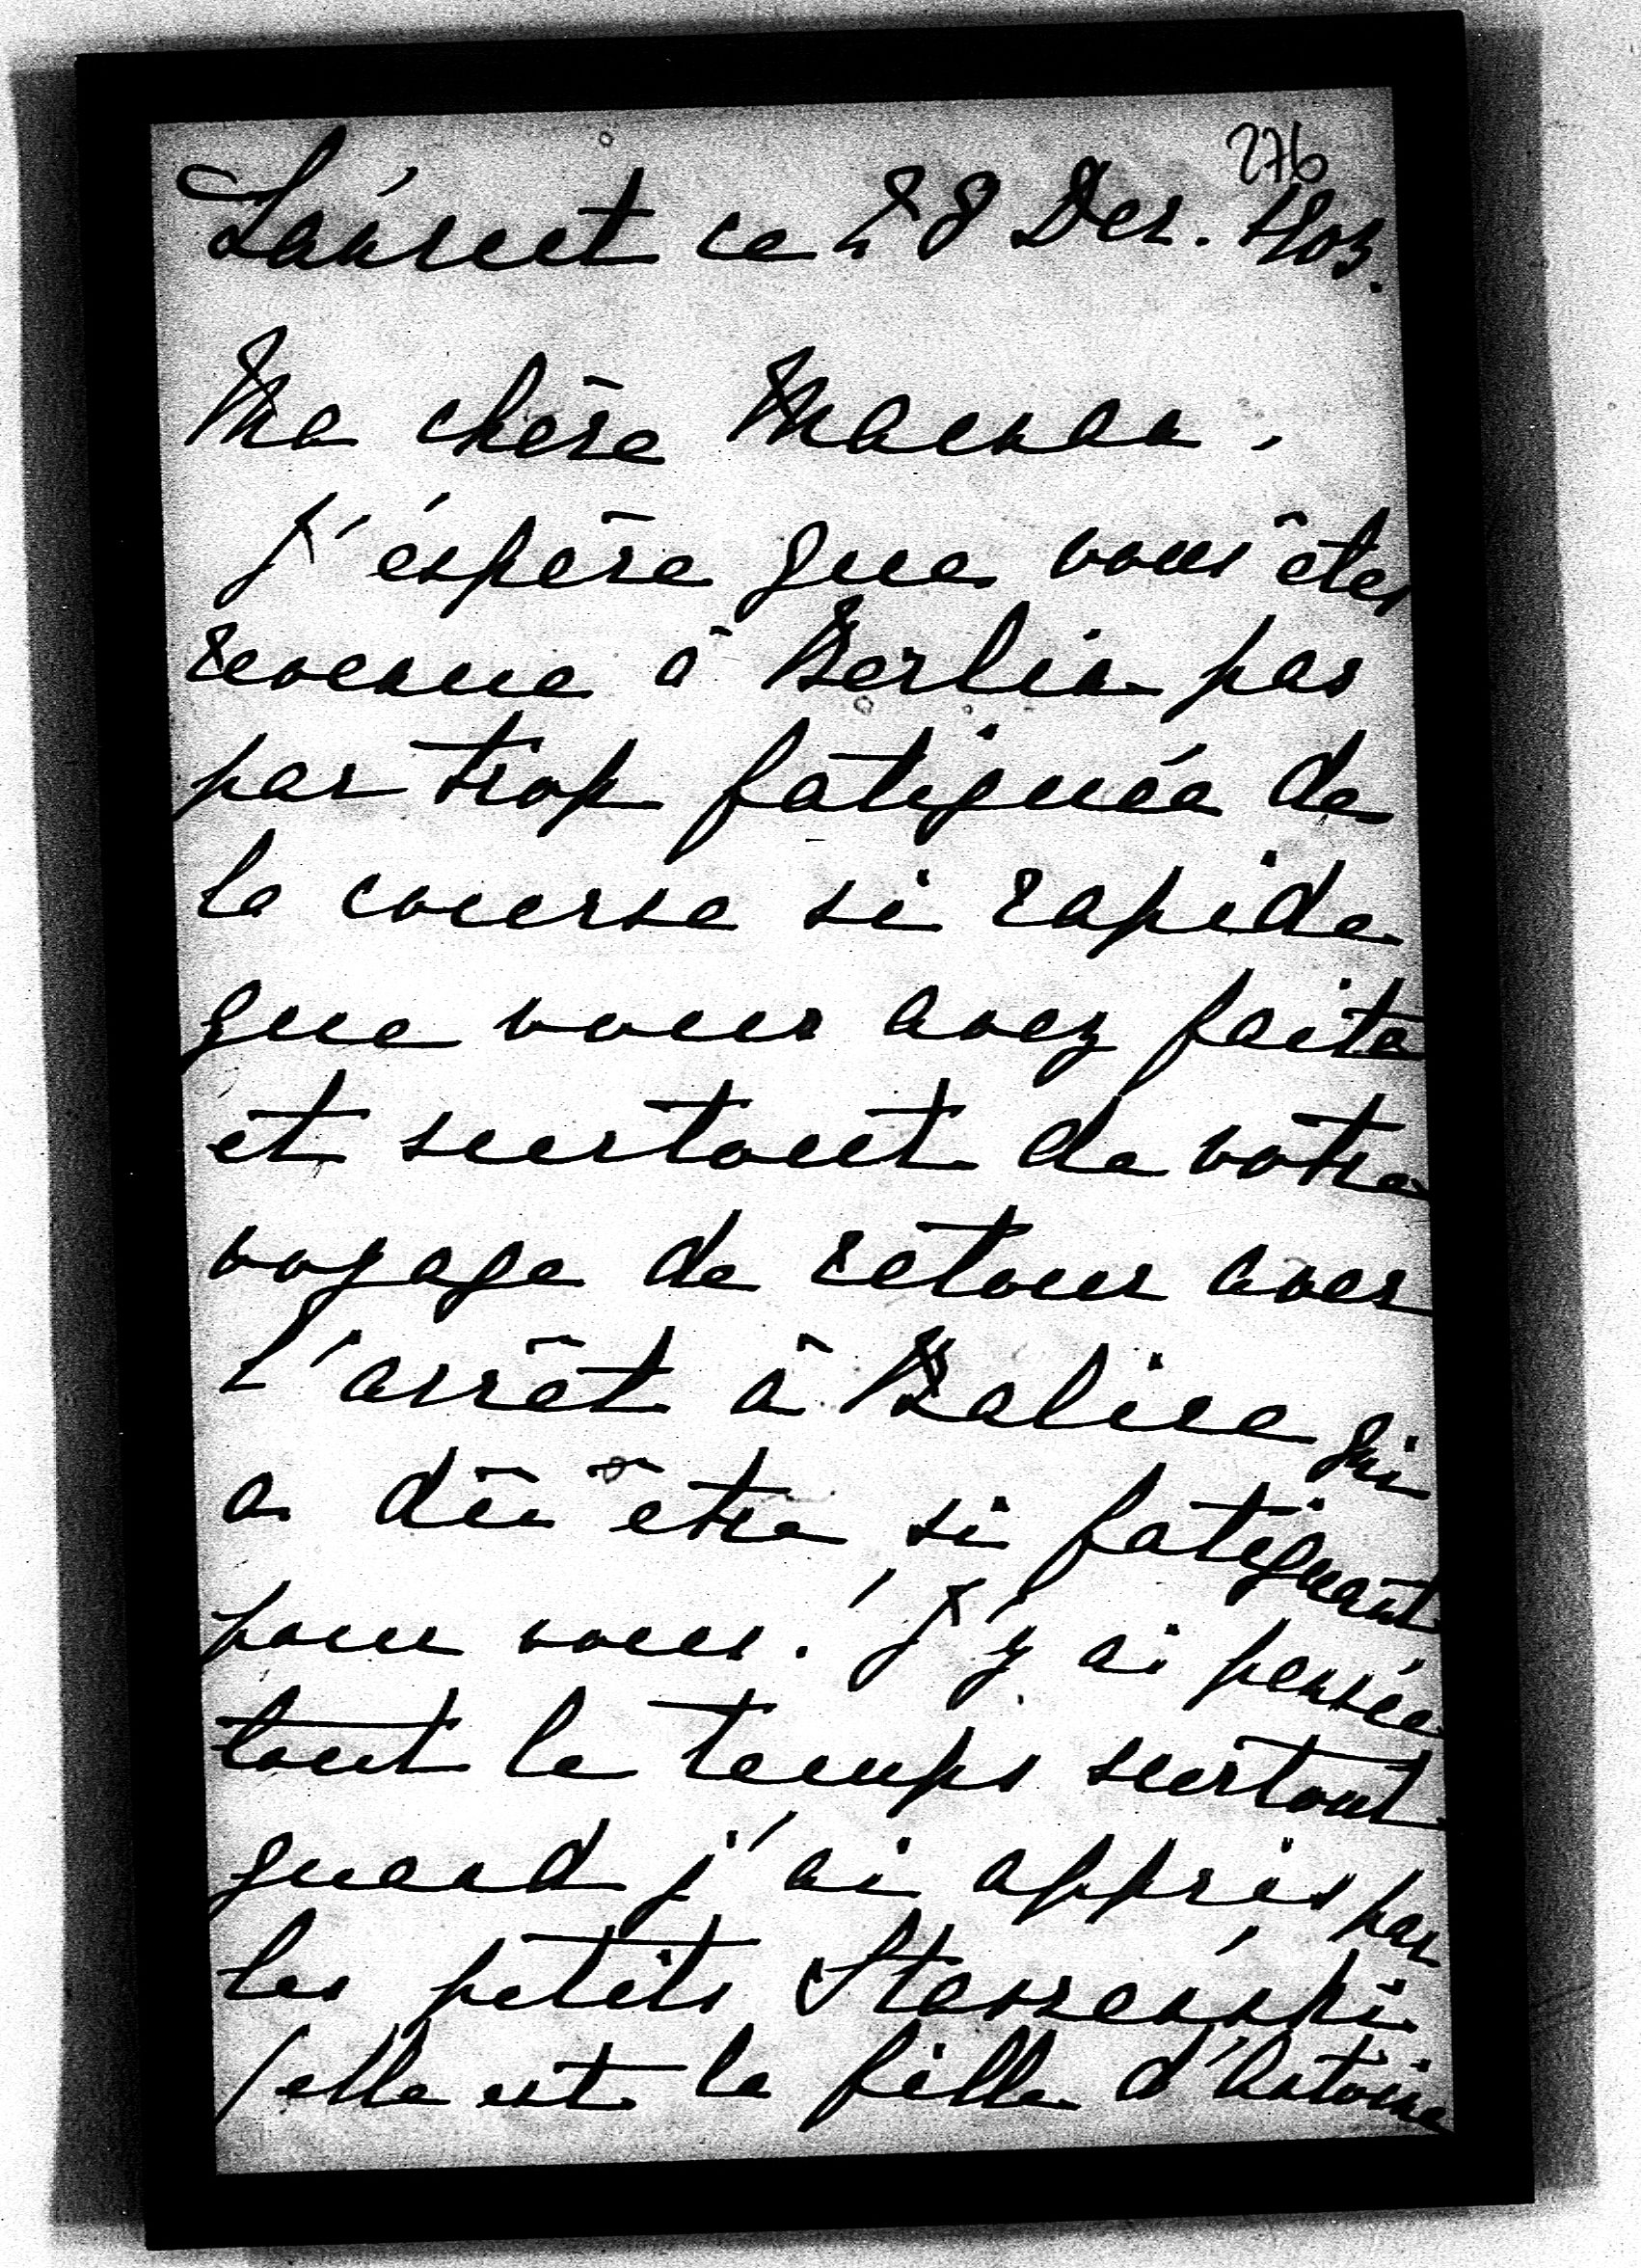 276
Łańcut ce 28 Dec. 1903.
Ma chère Maman,
J'éspère que vous êtes
revenue à Berlin pas
par trop fatiguée de
la course si rapide
que vous avez faite
et surtout de votre
voyage de retour avec
l'arrêt à Balice qui
a dû être si fatiguant
pour vous. J'y ai pensée
tout le temps surtout
quand j'ai appris par
les petits
(elle est la fille d'Antoine